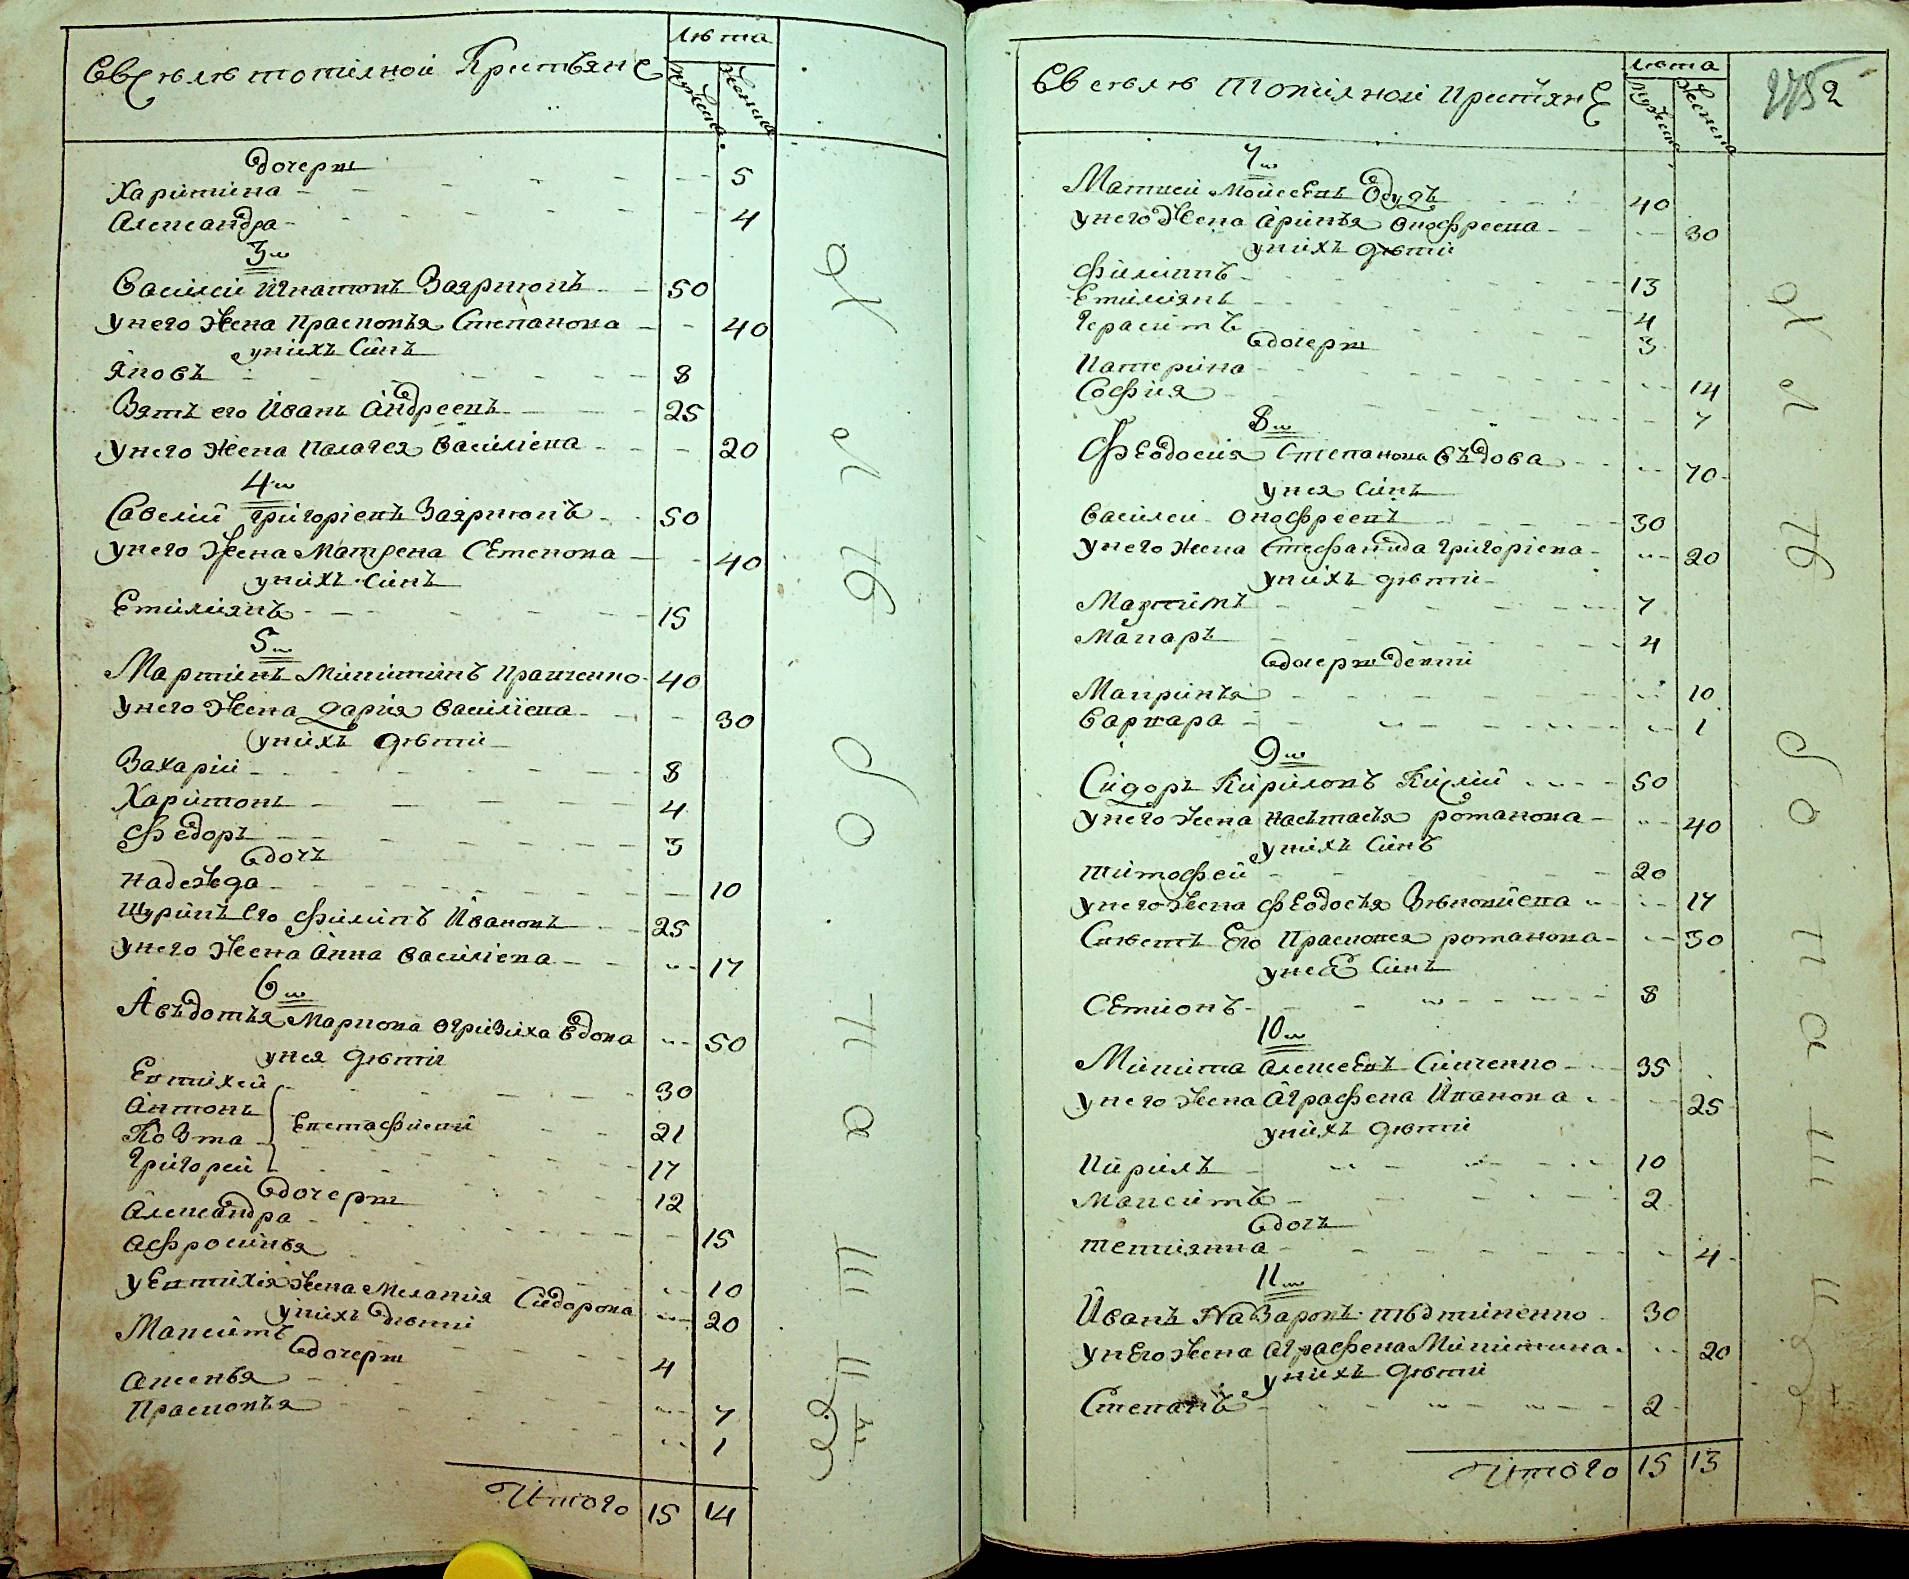 Въ селѣ топилной Крестьяне
лѣта
мужеска
женска
дочери
Харитина 5
Александра 4
3
Василей Игнатовъ Заярнюкъ 50
у него жена Прасковья Степанова 40
у нихъ синъ
Яковъ 8
Зять его Иванъ Андреевъ 25
у него жена Палагея Василіева 20
4
Савелий Григоріевъ Заярнюкъ 50
у него жена Матрена Семенова 40
у нихъ синъ
Емилиянъ 15
5
Мартинъ Микитинъ Кравченко 40
у него жена дария Василіева 30
у нихъ дѣти
Захарий 8
Харитонъ 4
Федоръ 3
дочъ
надежда 10
Шуринъ Его Филипъ Ивановъ 25
у него жена Анна Василіева 17
6
Авъдотья Маркова вдова 50
у нея дѣти
Евтихей 30
Антонъ 21
Козма 17
Григорей 12
Евстафиеви
дочери
Александра 15
Афросинья 10
у Евтихія жена Мелания Сидорова 20
у нихъ дѣти
Максимъ 4
дочери
Аксенья 7
Прасковья 1
Итого 15 14
Въ селѣ Топилной Крестьяне
лѣта
мужеска
женска
2752
7
Матвей Мойсеевъ 40
у него жена Аринья Онофреева 30
у нихъ дѣти
Филиппъ 13
Емилиянъ 4
Герасимъ 3
дочери
Катерина 14
София 7
8
Феодосия Степанова въдова 70
у нея синъ
Василей Онофреевъ 30
у него жена Стефанида Григоріева 20
у нихъ дѣти
Мазтимъ 7
Макаръ 4
дочери девки
Макринья 10
Варвара 1
9
Сидоръ Кириловъ Кислий 50
у него жена настасья романова 40
у нихъ синъ
тимофей 20
у него жена Феодосья Зѣновиева 17
Его Прасковея романова 30
у нее синъ
Семионъ 8
10
Микита Алексеевъ Синченко 35
у него жена Аграфена Иванова 25
у нихъ дѣти
Кирилъ 10
Максимъ 2
дочъ
тетиянна 4
11
Иванъ Назаровъ 30
у него жена Аграфена Микитина 20
у нихъ дѣти
Степанъ 2
Итого 15 13